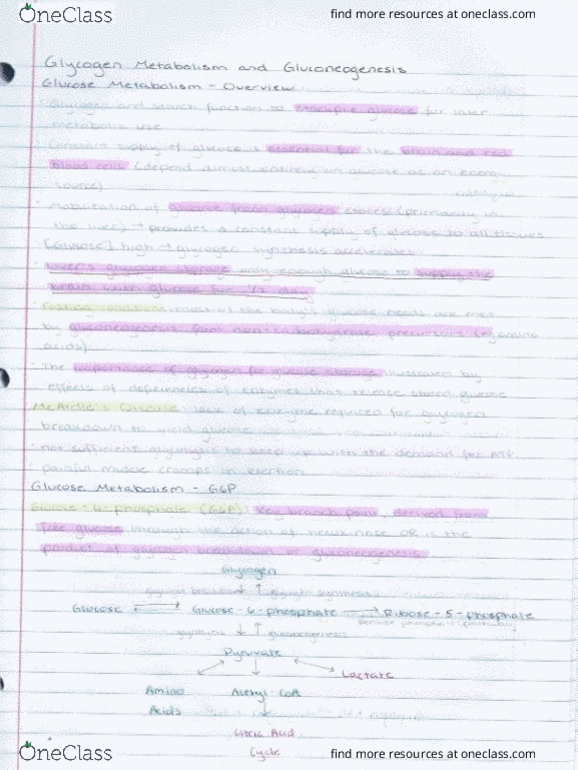 OneClass find more resources at oneclass.com
Glycogen Metabolism and Gluconeogenesis
Glucose Metabolism - Overview
Glycogen and starch function to glucose for later
metabolic use
Constant supply of glucose is essential for the brain and red
blood cells (depend almost entirely on glucose as an energy
source)
Mobilization of glucose from glycogen stores (primarily in
the liver) → provides a constant supply of glucose to all tissues
[Glucose] high → glycogen synthesis accelerates
Liver's glycogen storage only enough glucose to supply the
brain with glucose for 1/2 day
Fasting conditions: most of the body's glucose needs are met
by gluconeogenesis from non-carbohydrate precursors (eg amino
acids)
The importance of glycogen for glucose storage illustrated by
effects of deficiencies of enzymes that release stored glucose
McArdle's Disease: lack of enzyme required for glycogen
breakdown to yield glucose
not sufficient glycolysis to keep up with the demand for ATP
painful muscle cramps on exertion
Glucose Metabolism - G6P
Glucose-6-phosphate (G6P): key branch point, derived from
free glucose through the action of hexokinase OR is the
product of glycogen breakdown or gluconeogenesis
Glycogen
glycogen breakdown ↓ ↑ glycogen synthesis
Glucose ⇌ Glucose-6-phosphate ⇌ Ribose-5-phosphate
pentose phosphate pathway
glycolysis ↓ ↑ gluconeogenesis
Pyruvate
Lactate
Amino Acetyl-CoA
Acids
Citric Acid
Cycle
OneClass find more resources at oneclass.com